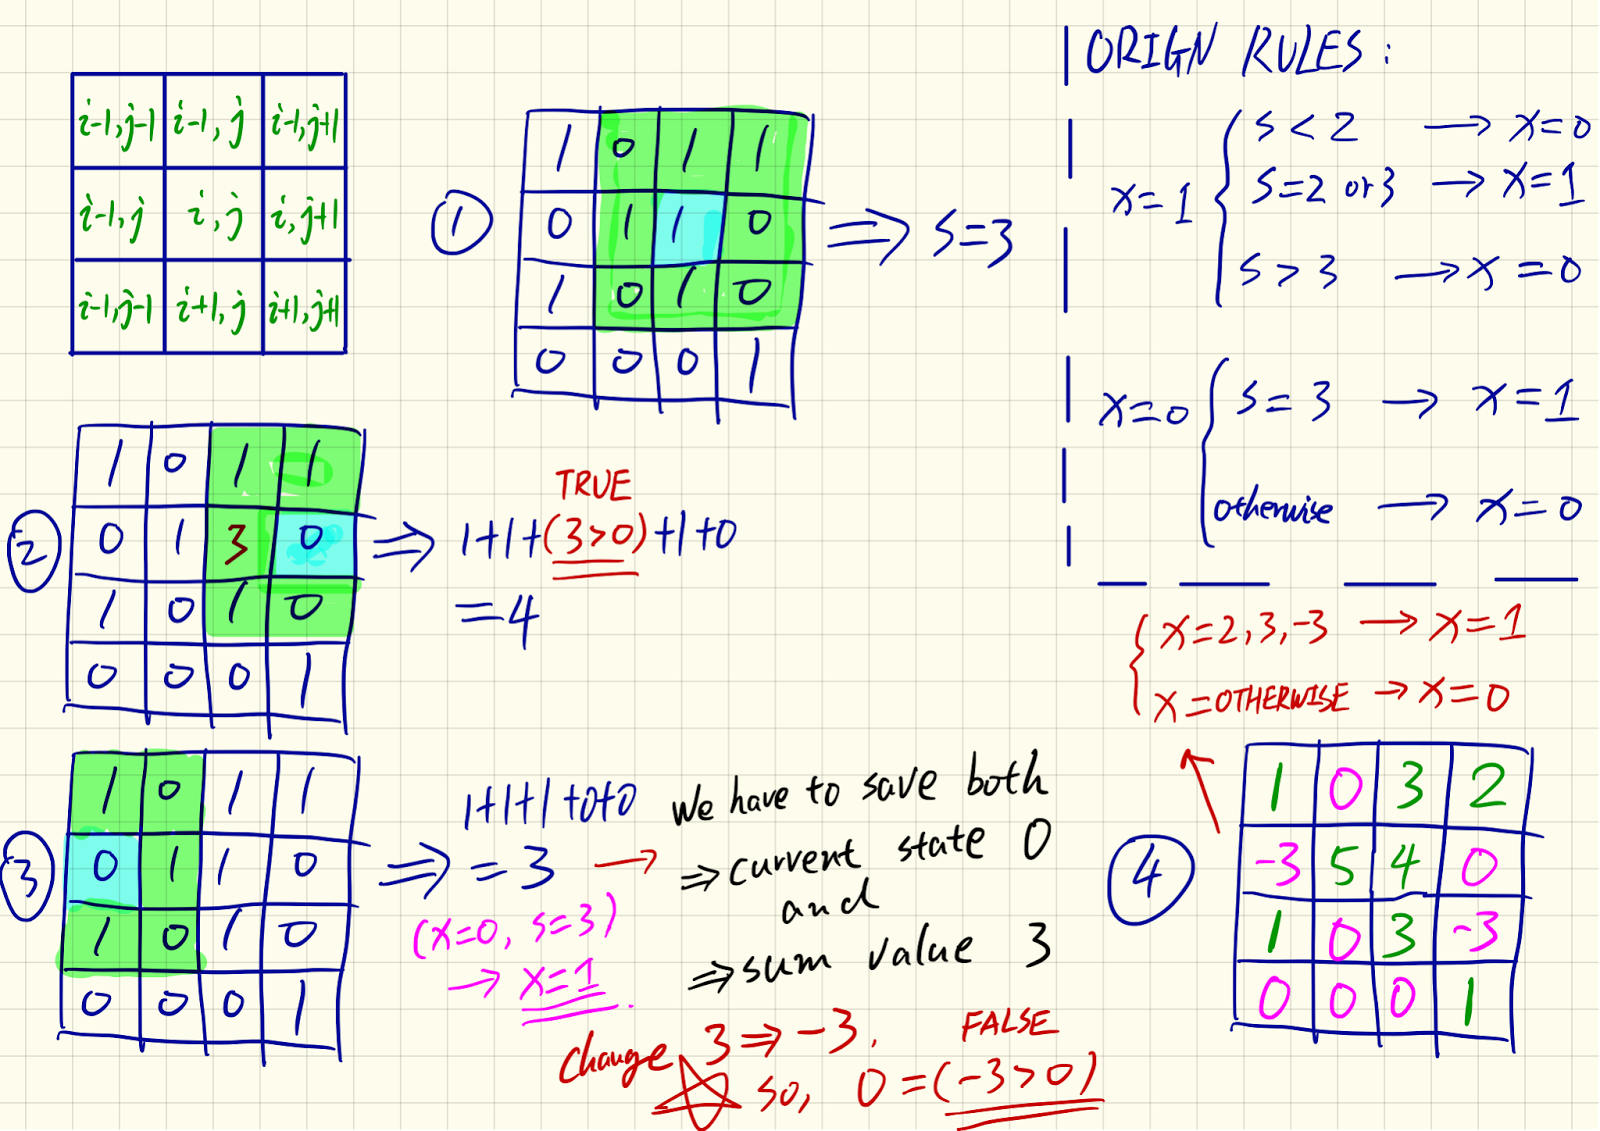 i-1,j-1 i-1,j i-1,j+1
i-1,j i,j i,j+1
i-1,j-1 i+1,j i+1,j+1
①
1 0 1 1
0 1 1 0
1 0 1 0
0 0 0 1
⇒ s=3
ORIGN RULES:
x=1 { s<2 → x=0
s=2 or 3 → x=1
s>3 → x=0
x=0 { s=3 → x=1
otherwise → x=0
②
1 0 1 1
0 1 3 0
1 0 1 0
0 0 0 1
TRUE
⇒ 1+1+(3>0)+1+0
=4
{ x=2,3,-3 → x=1
x=OTHERWISE → x=0
③
1 0 1 1
0 1 1 0
1 0 1 0
0 0 0 1
1+1+1+0+0
⇒ =3 →
(x=0, s=3)
→ x=1.
We have to save both
⇒ current state 0
and
⇒ sum value 3
Change 3 ⇒ -3.
FALSE
so, 0=(-3>0)
④
1 0 3 2
-3 5 4 0
1 0 3 -3
0 0 0 1